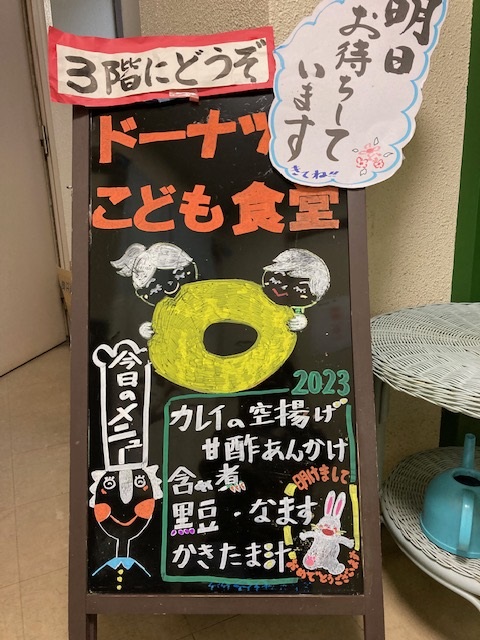 3階にどうぞ
明日
お待ちして
います
きてね!!
ドーナツ
こども食堂
今日のメニュー
2023
カレイの空揚げ
甘酢あんかけ
含め煮
黒豆・なます
かきたま汁
明けまして
おめでとうございます